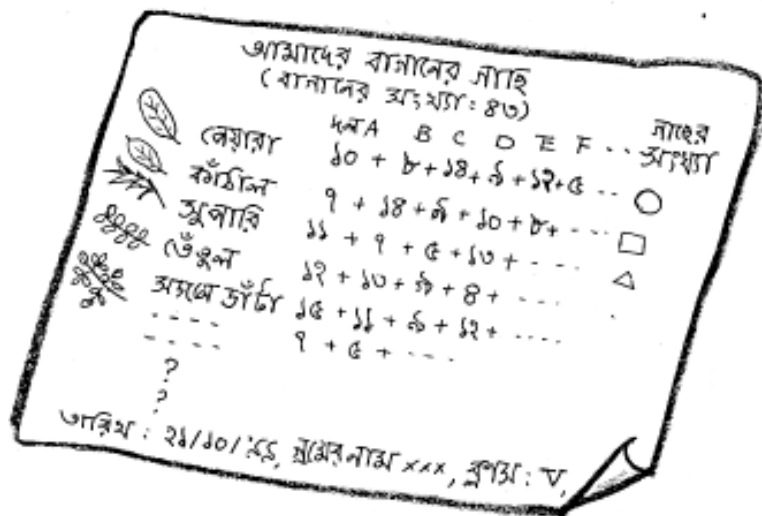 আমাদের বাগানের গাছ
(বাগানের সংখ্যা: ৪৩)
দল A B C D E F .. গাছের সংখ্যা
পেয়ারা ১০ + ৮ + ১৪ + ৯ + ১২ + ৫ ..
কাঁঠাল ৭ + ১৪ + ৯ + ১০ + ৮ + ....
সুপারি ১১ + ৭ + ৫ + ১৩ + ....
তেঁতুল ১২ + ১৩ + ৯ + ৪ + ....
সজনে ডাঁটা ১৫ + ১১ + ৯ + ১২ + ....
---- ৭ + ৫ + ....
----
?
?
তারিখ : ২১/১০/ নাম xxx, : V,